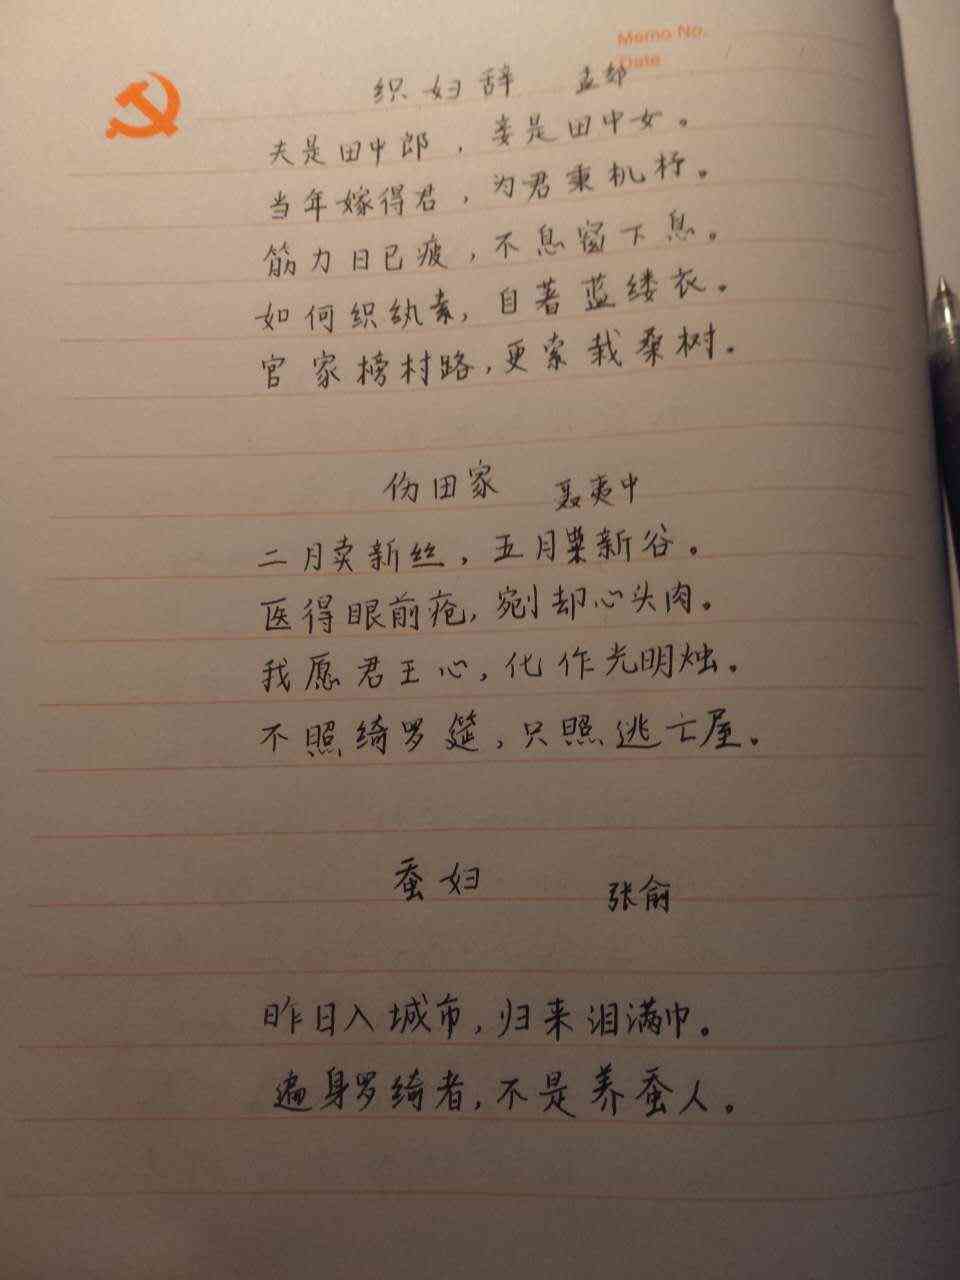 Memo No.
Date
织妇辞 孟郊
夫是田中郎，妾是田中女。
当年嫁得君，为君秉机杼。
筋力日已疲，不息窗下息。
如何织纨素，自著蓝缕衣。
官家榜村路，更索栽桑树。
伤田家 聂夷中
二月卖新丝，五月粜新谷。
医得眼前疮，剜却心头肉。
我愿君王心，化作光明烛。
不照绮罗筵，只照逃亡屋。
蚕妇 张俞
昨日入城市，归来泪满巾。
遍身罗绮者，不是养蚕人。